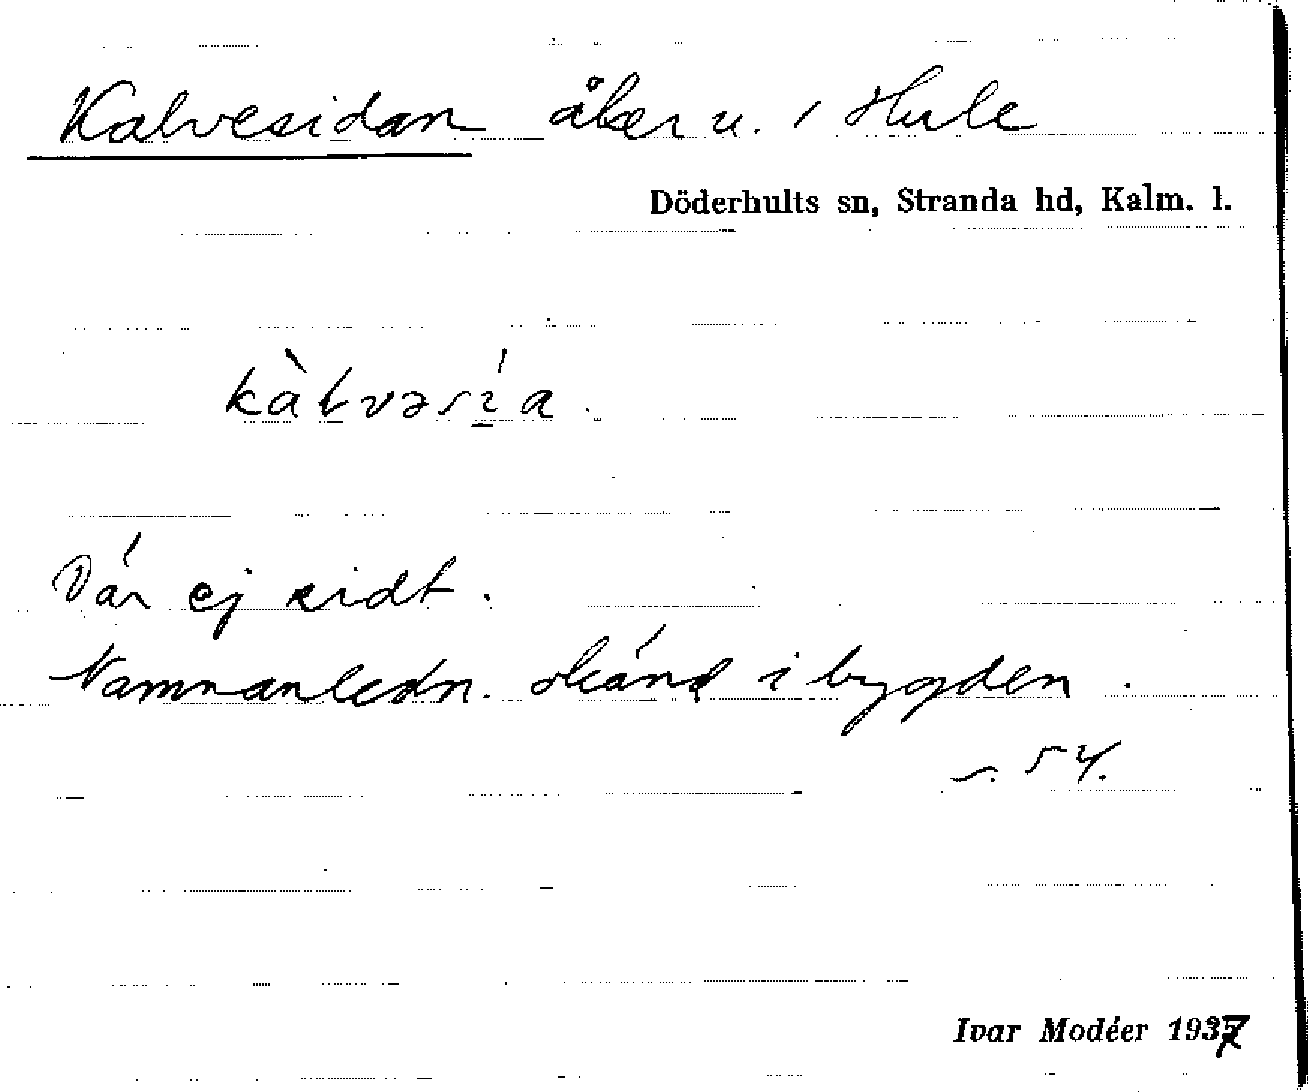 Kalvesidan åker u. / Hule
Döderhults sn, Stranda hd, Kalm. l.
kàɫvəsí̱a.
Där ej sidt.
Namnanledn. okänd i bygden.
s. 54.
Ivar Modéer 1937